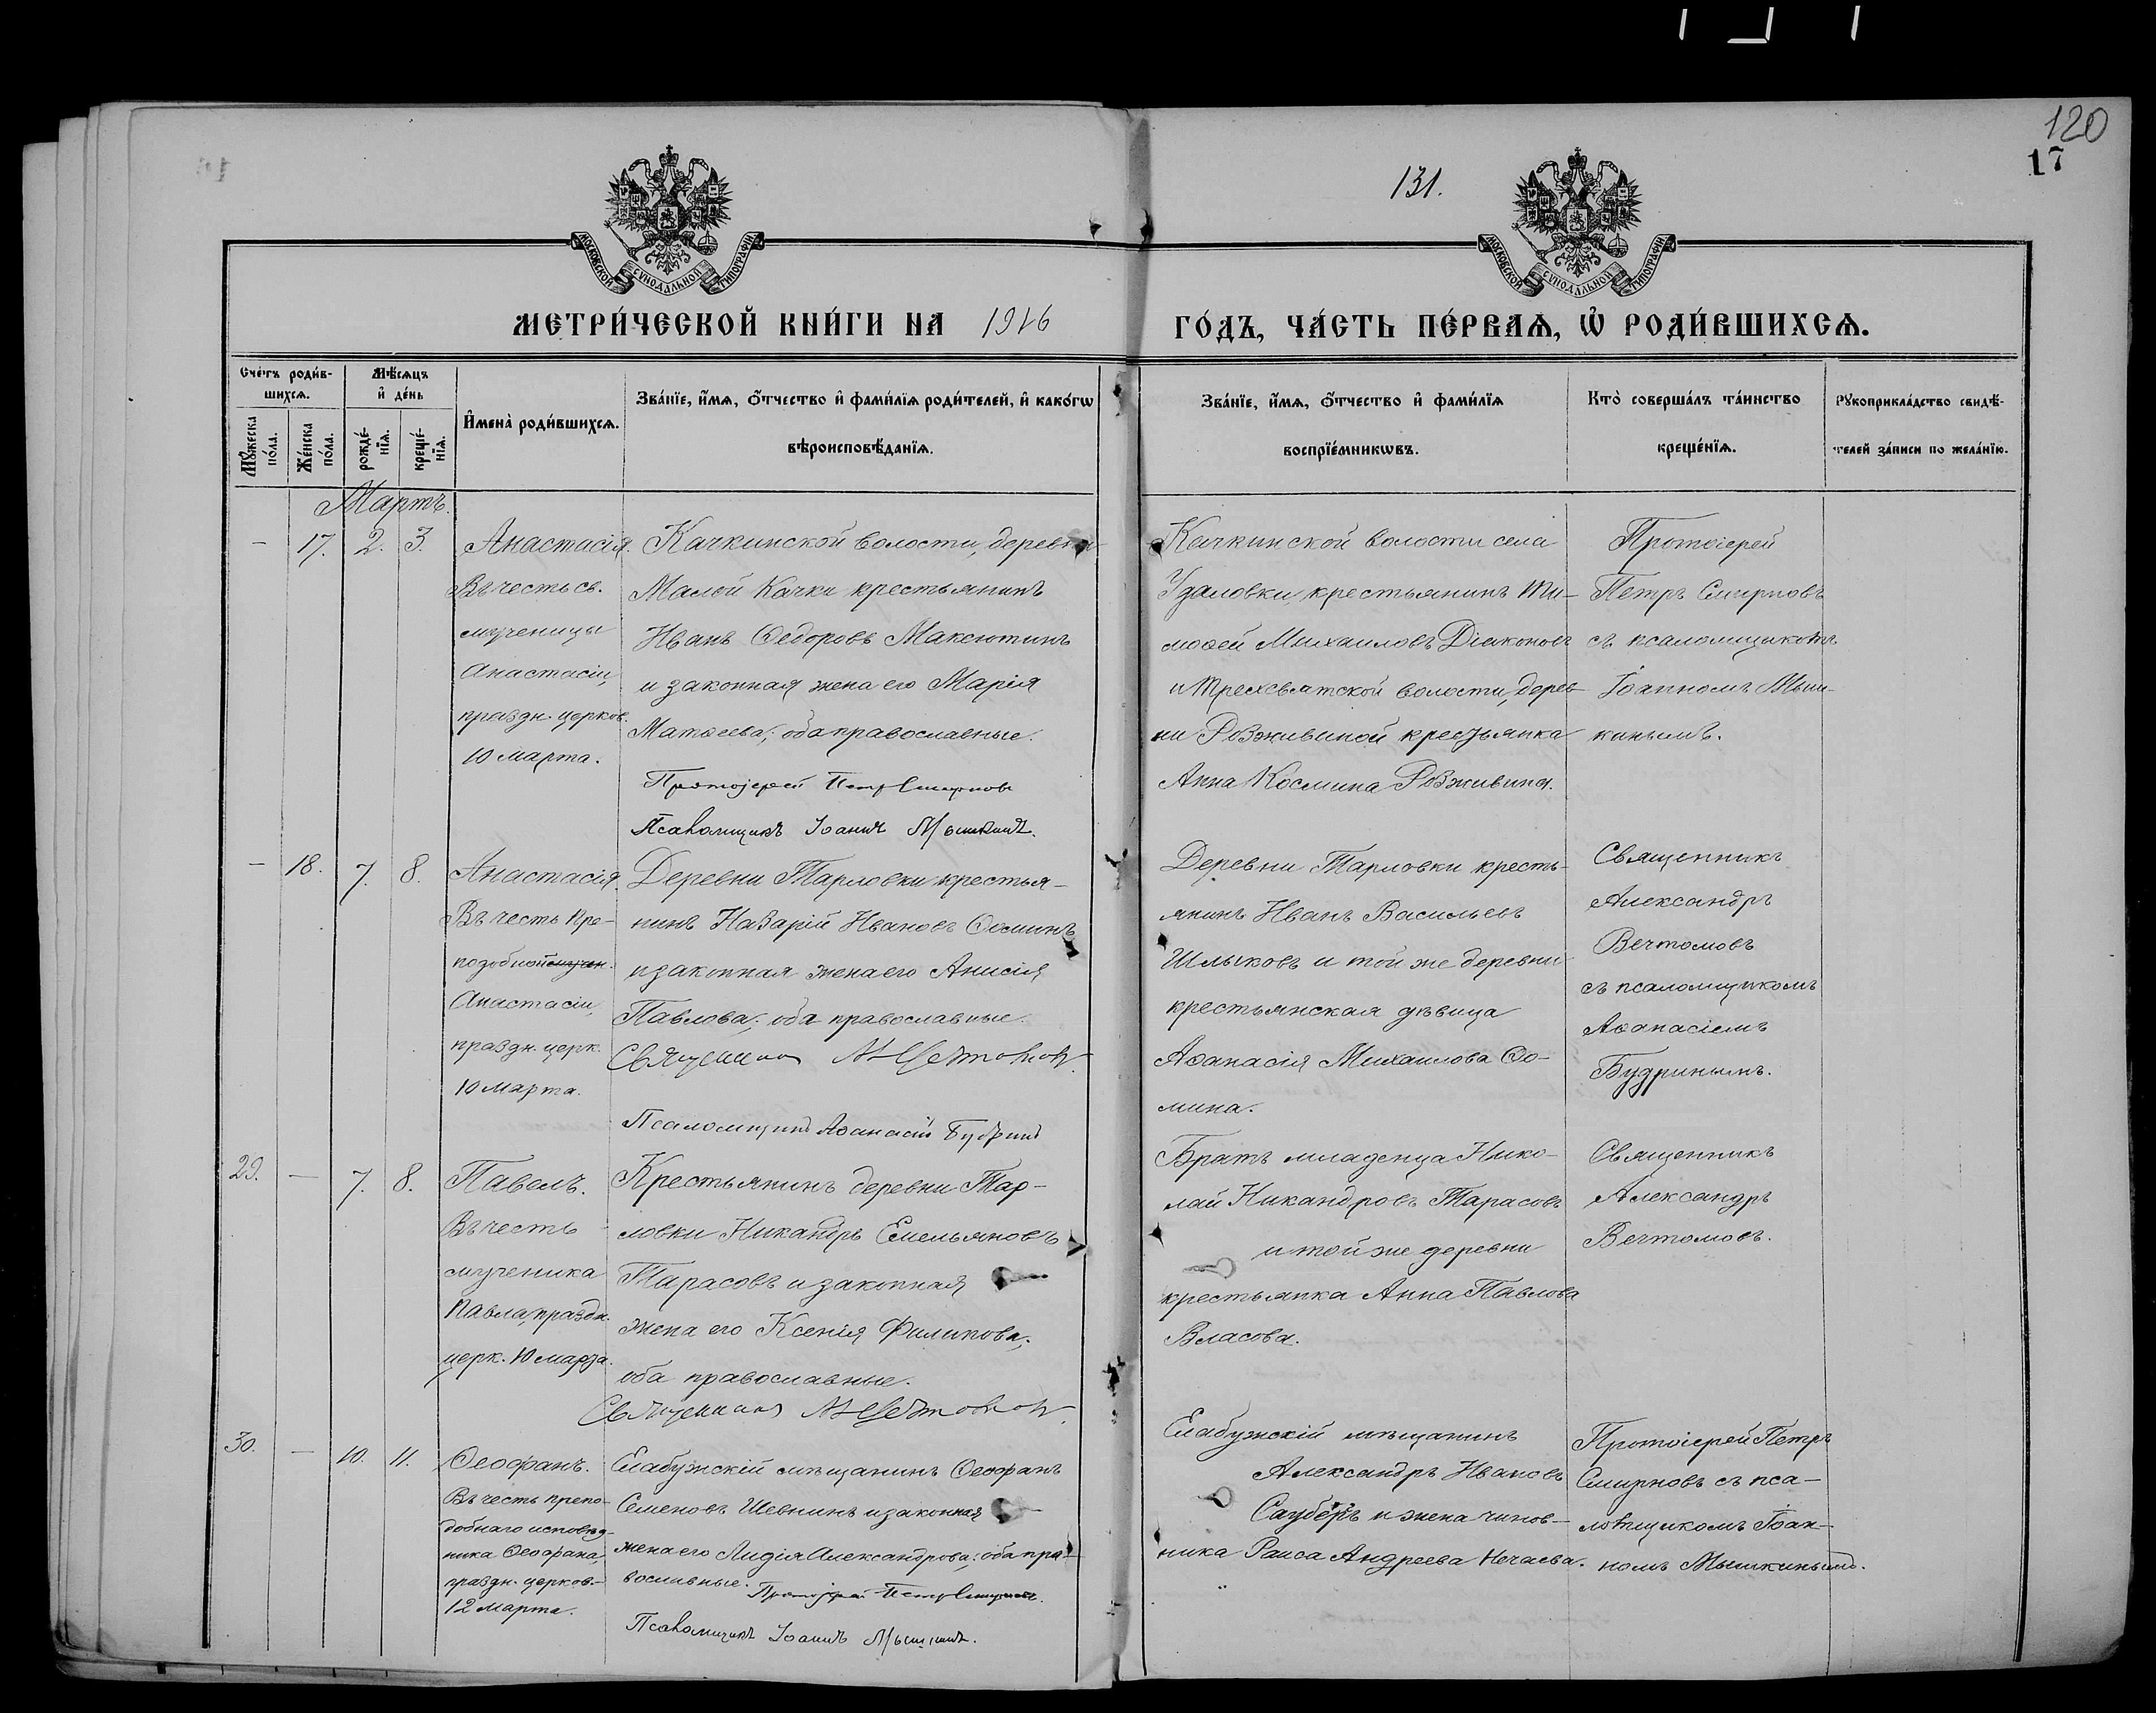 120
17
131.
МОСКОВСКОЙ СѴНОДАЛЬНОЙ ТИПОГРАФІИ
МОСКОВСКОЙ СѴНОДАЛЬНОЙ ТИПОГРАФІИ
МЕТРИ́ЧЕСКОЙ КНИ́ГИ НА 1916 ГО́ДЪ, ЧА́СТЬ ПЕ́РВАѦ, Ѡ҆ РОДИ́ВШИХСѦ.
Сче́тъ роди́в-
шихсѧ.
Мꙋ́жеска по́ла.
Же́нска по́ла.
Мѣ́сѧцъ
и҆ де́нь
рожде́-нїѧ.
креще́-нїѧ.
И҆мена̀ роди́вшихсѧ.
Зва́нїе, и҆́мѧ, ѻ҆́тчество и҆ фами́лїѧ роди́телей, и҆ како́гѡ
вѣроисповѣ́данїѧ.
Зва́нїе, и҆́мѧ, ѻ҆́тчество и҆ фами́лїѧ
воспрїе́мникѡвъ.
Кто̀ соверша́лъ та́инство
креще́нїѧ.
Рꙋкоприкла́дство свидѣ́-
телей за́писи по жела́нїю.
Мартъ.
– 17. 2. 3.
Анастасія.
Въ честь св.
мученицы
Анастасіи,
праздн. церков.
10 марта.
Качкинской волости, деревни
Малой Качки крестьянинъ
Иванъ Ѳедоровъ Максютинъ
и законная жена его Марія
Матѳеева; оба православные.
Протоіерей Петръ Смирновъ
Псаломщикъ Іоаннъ Мышкинъ.
Качкинской волости села
Удаловки крестьянинъ Ти-
моѳей Михаиловъ Діаконовъ
и Трехсвятской волости, дерев-
ни Розживиной крестьянка
Анна Космина Розживина.
Протоіерей
Петръ Смирновъ
съ псаломщикомъ
Іоанномъ Мыш-
кинымъ.
– 18. 7. 8.
Анастасія.
Въ честь пре-
подобной мучен.
Анастасіи,
праздн. церк.
10 марта.
Деревни Тарловки крестья-
нинъ Назарій Ивановъ Ѳоминъ
и законная жена его Анисія
Павлова; оба православные.
Священникъ А. Вечтомовъ.
Псаломщикъ Аѳанасій Будринъ
Деревни Тарловки кресть-
янинъ Иванъ Васильевъ
Шлыковъ и той же деревни
крестьянская дѣвица
Аѳанасія Михаилова Ѳо-
мина.
Священникъ
Александръ
Вечтомовъ
съ псаломщикомъ
Аѳанасіемъ
Будринымъ.
29. – 7. 8.
Павелъ.
Въ честь
мученика
Павла, праздн.
церк. 10 марта.
Крестьянинъ деревни Тар-
ловки Никандръ Емельяновъ
Тарасовъ и законная
жена его Ксенія Филипова;
оба православные.
Священникъ А. Вечтомовъ.
Братъ младенца Нико-
лай Никандровъ Тарасовъ
и той же деревни
крестьянка Анна Павлова
Власова.
Священникъ
Александръ
Вечтомовъ.
30. – 10. 11.
Ѳеофанъ.
Въ честь препо-
добнаго исповѣд-
ника Ѳеофана,
праздн. церков.-
12 марта.
Елабужскій мѣщанинъ Ѳеофанъ
Семеновъ Шевнинъ и законная
жена его Лидія Александрова; оба пра-
вославные. Протоіерей Петръ Смирновъ.
Псаломщикъ Іоаннъ Мышкинъ.
Елабужскій мѣщанинъ
Александръ Ивановъ
Сауберъ и жена чинов-
ника Раиса Андреева Нечаева.
Протоіерей Петръ
Смирновъ съ пса-
ломщикомъ Іоан-
номъ Мышкинымъ.